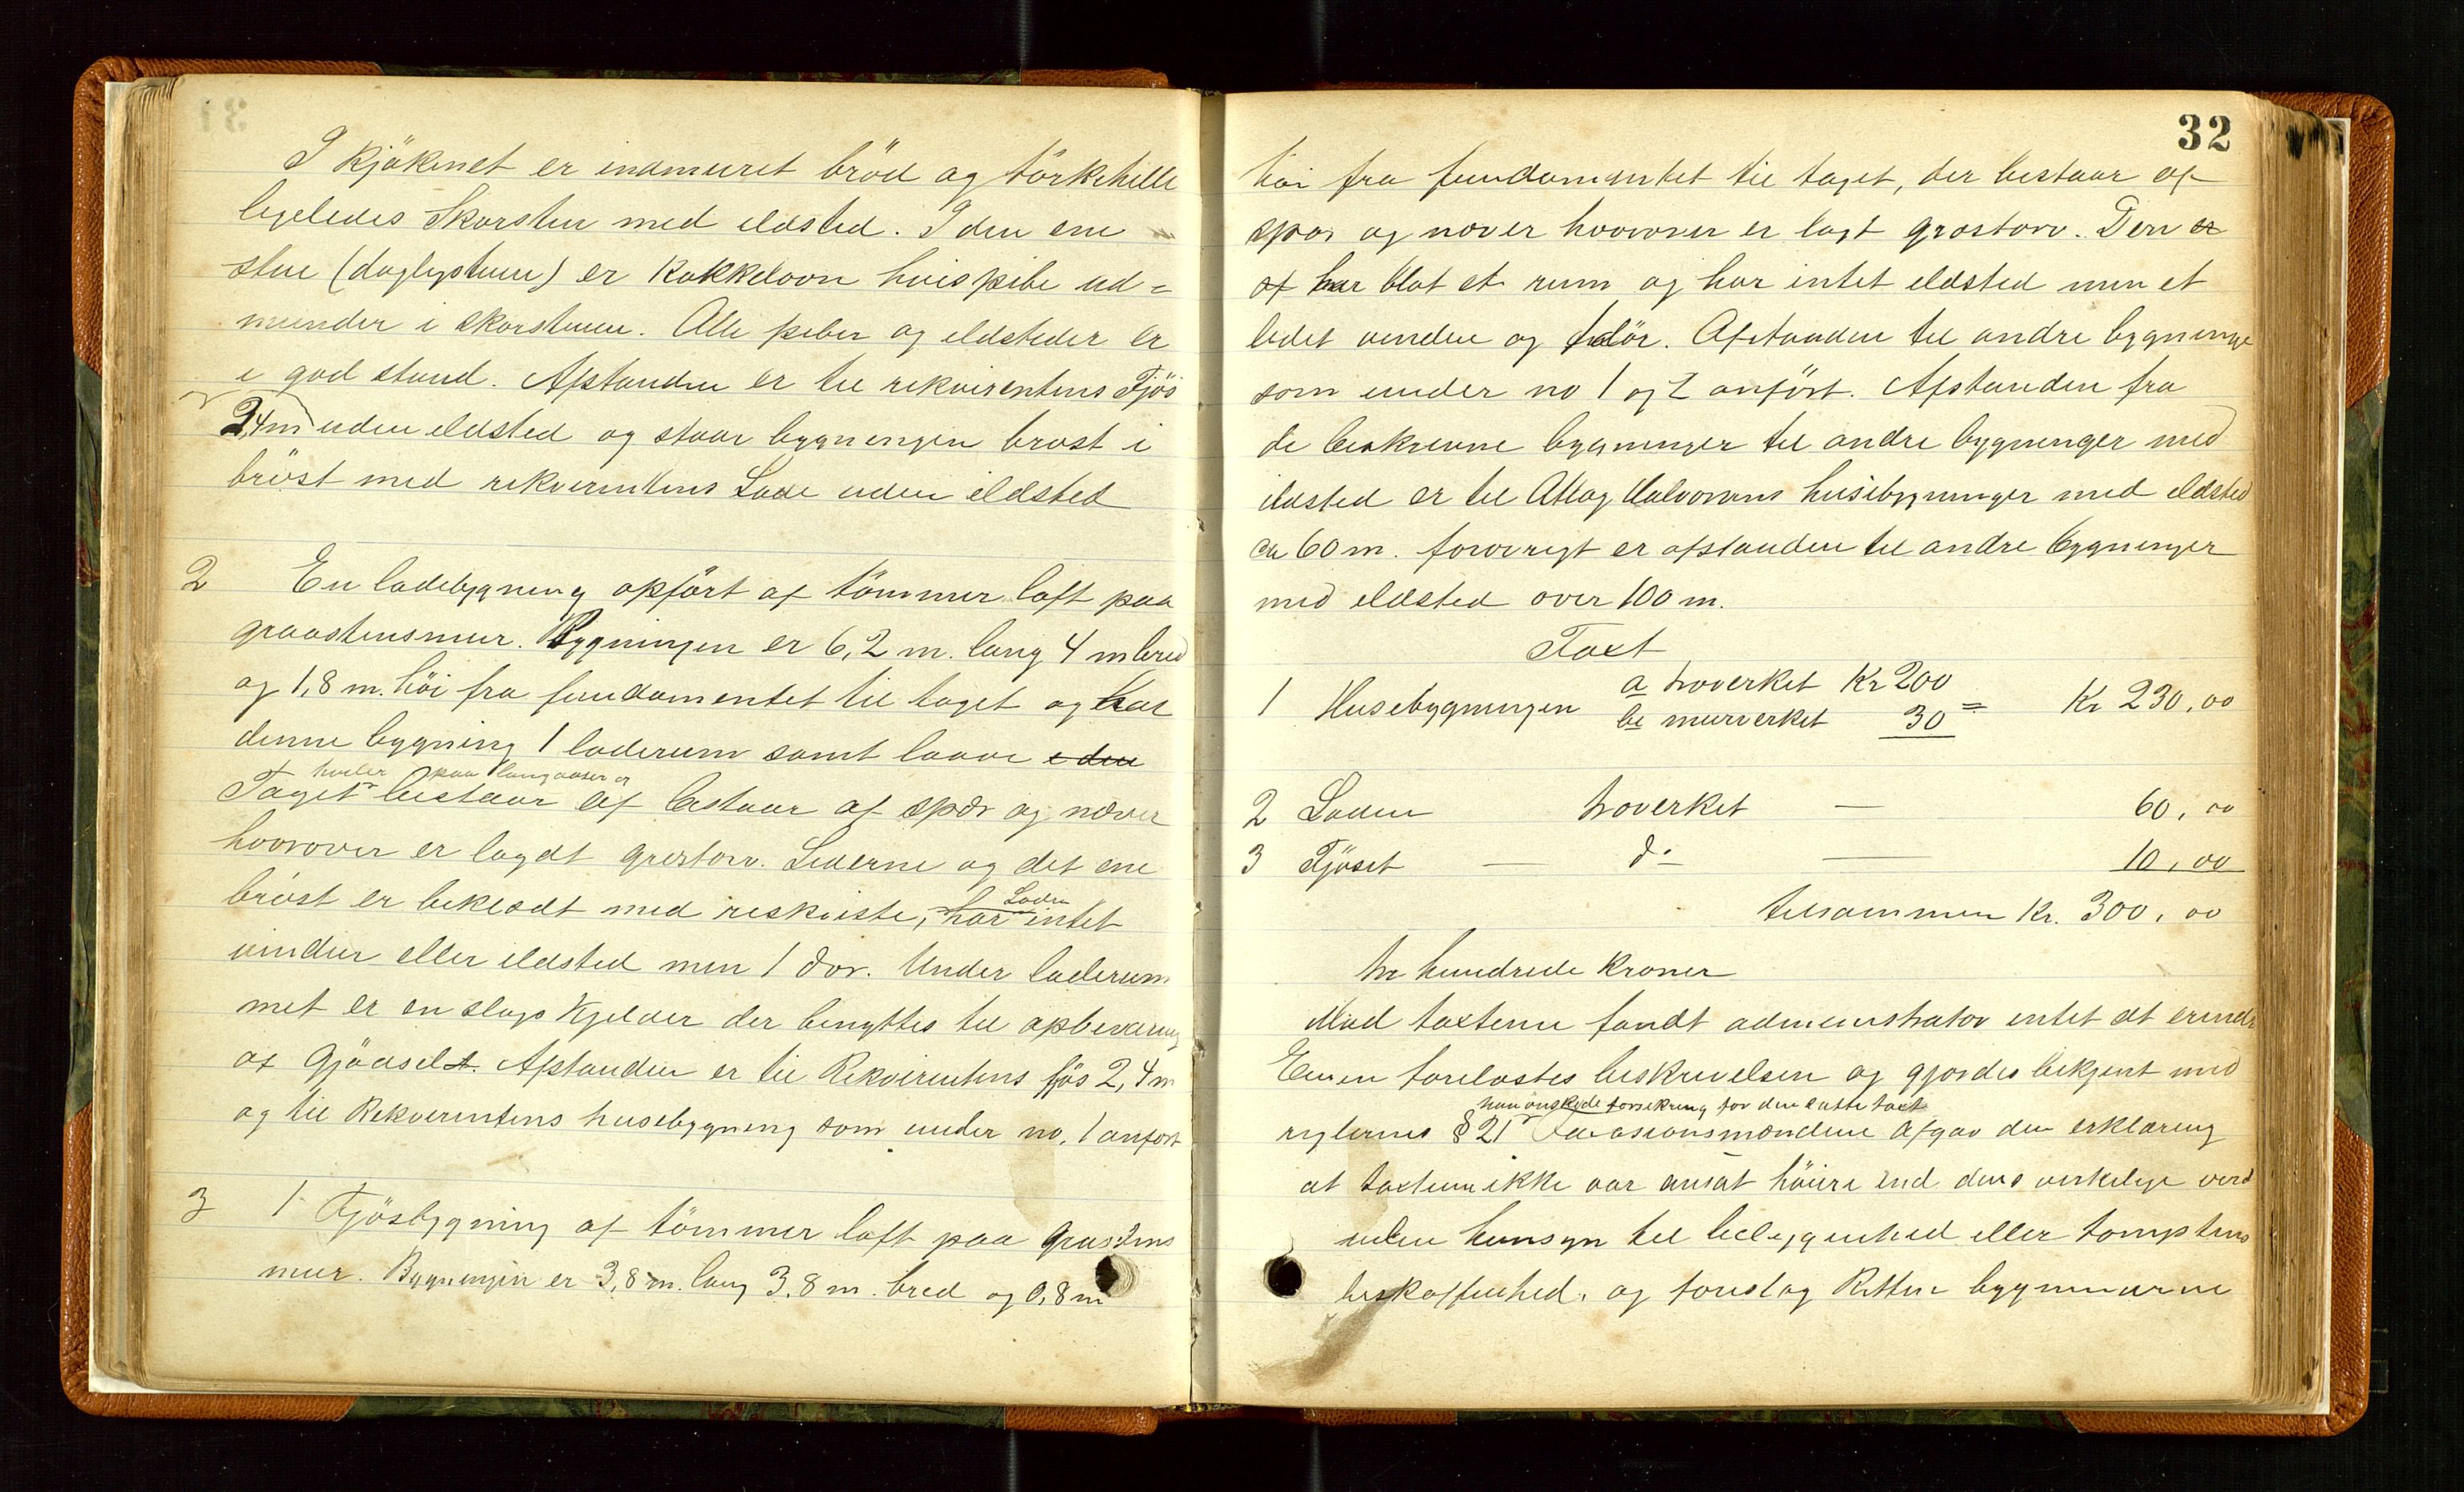 I kjökenet er indmuret bröd og törkehille
ligeledes Skorsten med ildsted. I den ene
stue (daglystuen) er Kakkeloon hvis pibe ud=
munder i skorstenen. Alle piber og ildsteder er
i god stand. Afstanden er til rekvirentens Fjös
2,4m uden ildsted og staar bygningen bröst i
bröst med rekvirentens Lade uden ildsted
2 En ladebygning opfört af tömmer laft paa
graastensmur. Bygningen er 6,2 m. lang 4 m bred
og 1,8 m. höi fra fundamentet til taget og har
denne bygning 1 laderum samt laave i den
hviler paa langaaser og
Taget bestaar af bestaar af spær og næver
hvorover er lagdt græstorv. Siderne og det ene
bröst er beklædt med reskviste, har Laden intet
vindue eller ildsted men 1 dör. Under laderum
met er en slags Kjelder der benyttes til opbevaring
af Gjödselt. Afstanden er til Rekvirentens fjös 2,4 m
og til Rekvirentens husebygning som under no. 1 anfört
3 1 Fjösbygning af tömmer laft paa grastens
mur. Bygningen er 3,8 m. lang 3,8 m. bred og 0,8 m
32
höi fra fundamentet til taget, der bestaar af
spær og næver hvorover er lagt græstorv. Den er
af har blot et rum og har intet ildsted men et
lidet vindue og 1 dör. Afstanden til andre bygninger
som under no 1 og 2 anfört. Afstanden fra
de beskrevne bygninger til andre bygninger med
ildsted er til Aslag Halvorsens husebygninger med ildsted
ca 60 m. forövrigt er afstanden til andre bygninger
med ildsted over 100 m.
Taxt
a træverket Kr 200
1 Husebygningen = Kr 230,00
b murverket 30
2 Laden træverket — 60,00
3 Fjöset — do — 10,00
tilsammen Kr. 300,00
tre hundrede Kroner
Mod taxterne fandt administrator intet at erindre
Eieren forelæstes beskrivelsen og gjordes bekjent med
han önskede forsikring for den satte taxt
reglernes § 21 Taxasionsmændene afgav den erklæring
at taxterne ikke var ansat höiere end dens virkelige værd
uden hensyn til beliggenhed eller tomptens
beskaffenhed, og foreslog Retten bygningerne